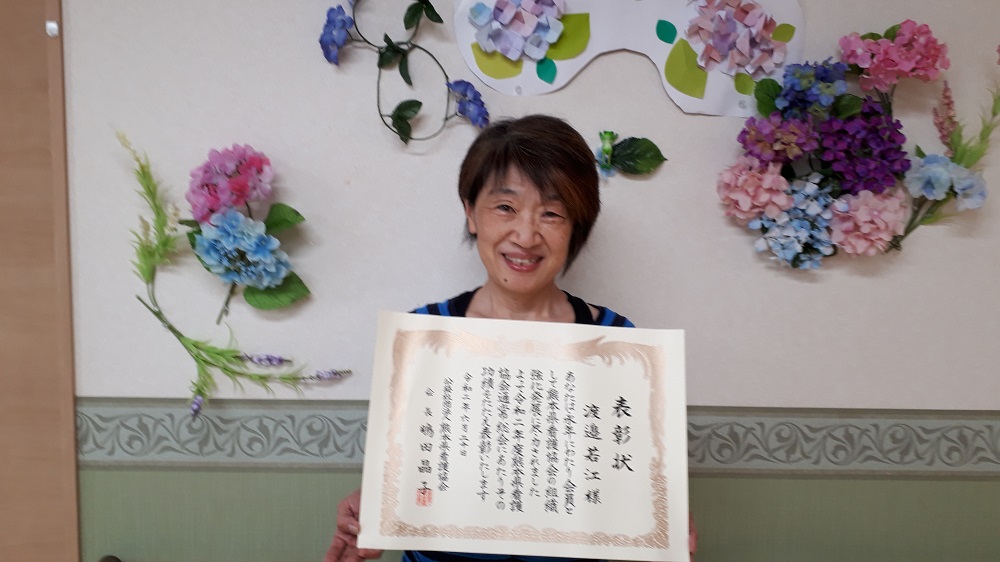 表彰状
渡邉若江様
あなたは永年にわたり会員と
して熊本県看護協会の組織
強化発展に尽力されました
よって令和二年度熊本県看護
協会通常総会にあたりその
功績をたたえ表彰いたします
令和二年六月二十日
公益社団法人熊本県看護協会
会長 嶋田晶子